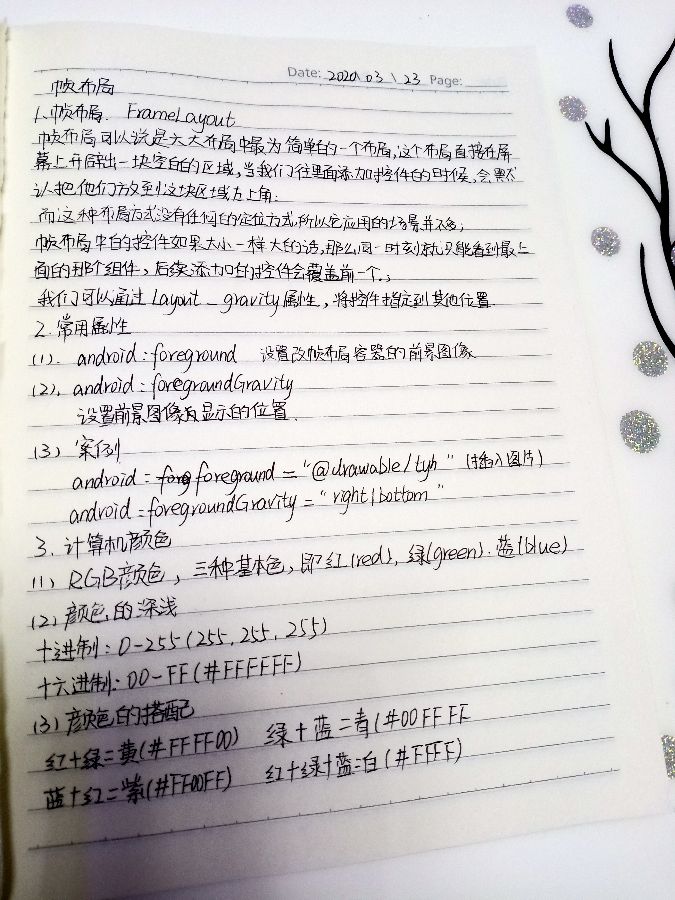 Date: 2020\03\23 Page:
帧布局
1、帧布局. FrameLayout
帧布局可以说是六大布局中最为简单的一个布局,这个布局直接在屏
幕上开辟出一块空白的区域,当我们往里面添加控件的时候,会默
认把他们放到这块区域左上角;
而这种布局方式没有任何的定位方式,所以它应用的场景并不多;
帧布局中的控件如果大小一样大的话,那么同一时刻就只能看到最上
面的那个组件,后续添加的控件会覆盖前一个.;
我们可以通过 layout_gravity 属性,将控件指定到其他位置.
2.常用属性
(1). android:foreground 设置改帧布局容器的前景图像
(2). android:foregroundGravity
设置前景图像显示的位置
(3) 案例
android:foreground="@drawable/tyh" (插入图片)
android:foregroundGravity="right|bottom"
3.计算机颜色
(1), RGB颜色,三种基本色,即红(red), 绿(green).蓝(blue)
(2) 颜色的深浅
十进制:0-255(255,255,255)
十六进制:00-FF(#FFFFFF)
(3)颜色的搭配
红+绿=黄(#FFFF00) 绿+蓝=青(#00FFFF
蓝+红=紫(#FF00FF) 红+绿+蓝=白(#FFFF)